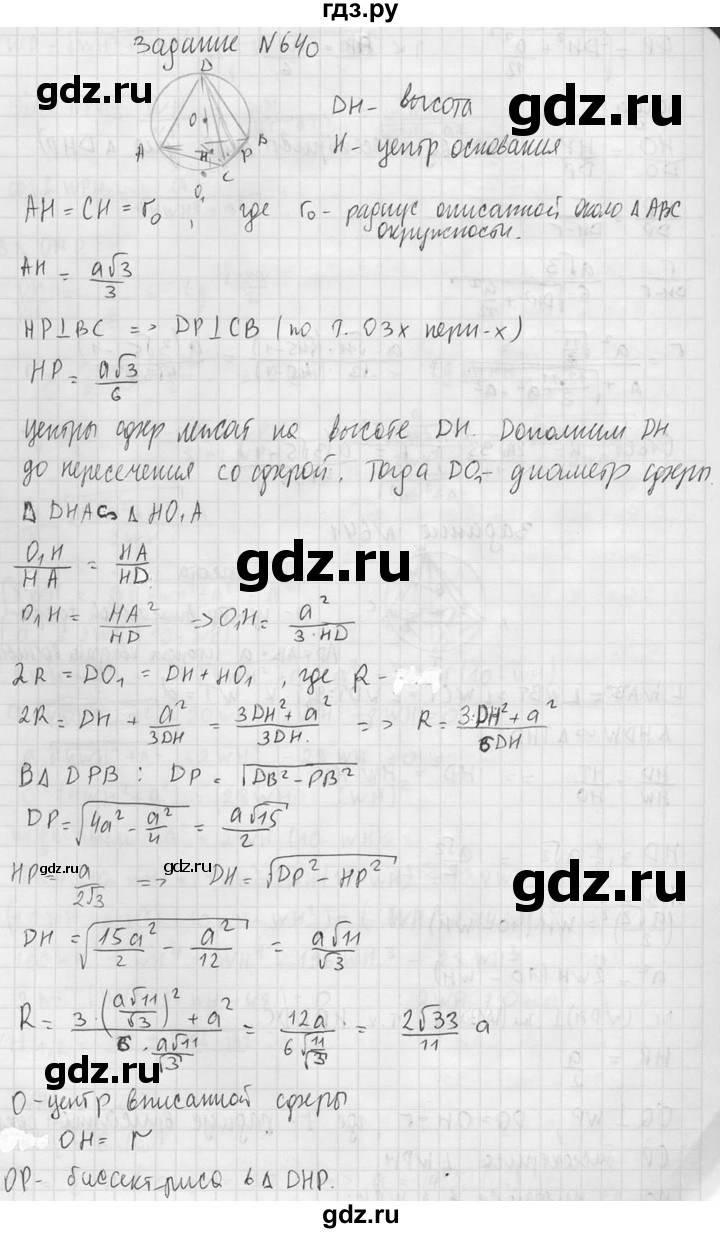 гдз.ру
Задание N640
gdz.ru gdz.ru
D
O
A B
H P
C
O₁
DH - высота
H - центр основания
AH = CH = r₀, где r₀ - радиус описанной около Δ ABC
окружности.
AH = a√3/3
HP⊥BC => DP⊥CB (по т. О 3х перп-х)
HP = a√3/6
gdz.ru
центры сфер лежат на высоте DH. Дополним DH
до пересечения со сферой. Тогда DO₁ - диаметр сферы.
Δ DHA ∽ Δ HO₁A
gdz.ru
O₁H/HA = HA/HD
O₁H = HA²/HD => O₁H = a²/(3·HD)
2R = DO₁ = DH + HO₁, где R -
2R = DH + a²/3DH = (3DH² + a²)/3DH. => R = (3·DH² + a²)/6DH
В Δ DPB : DP = √(DB² - PB²)
DP = √(4a² - a²/4) = a√15/2
gdz.ru gdz.ru gdz.ru
HP = a/2√3 => DH = √(DP² - HP²)
DH = √(15a²/2 - a²/12) = a√11/√3
R = (3·(a√11/√3)² + a²)/(6·a√11/√3) = 12a/(6√11/√3) = 2√33/11 a
gdz.ru
O - центр вписанной сферы
OH = r
OP - биссектриса в Δ DHP.
gdz.ru